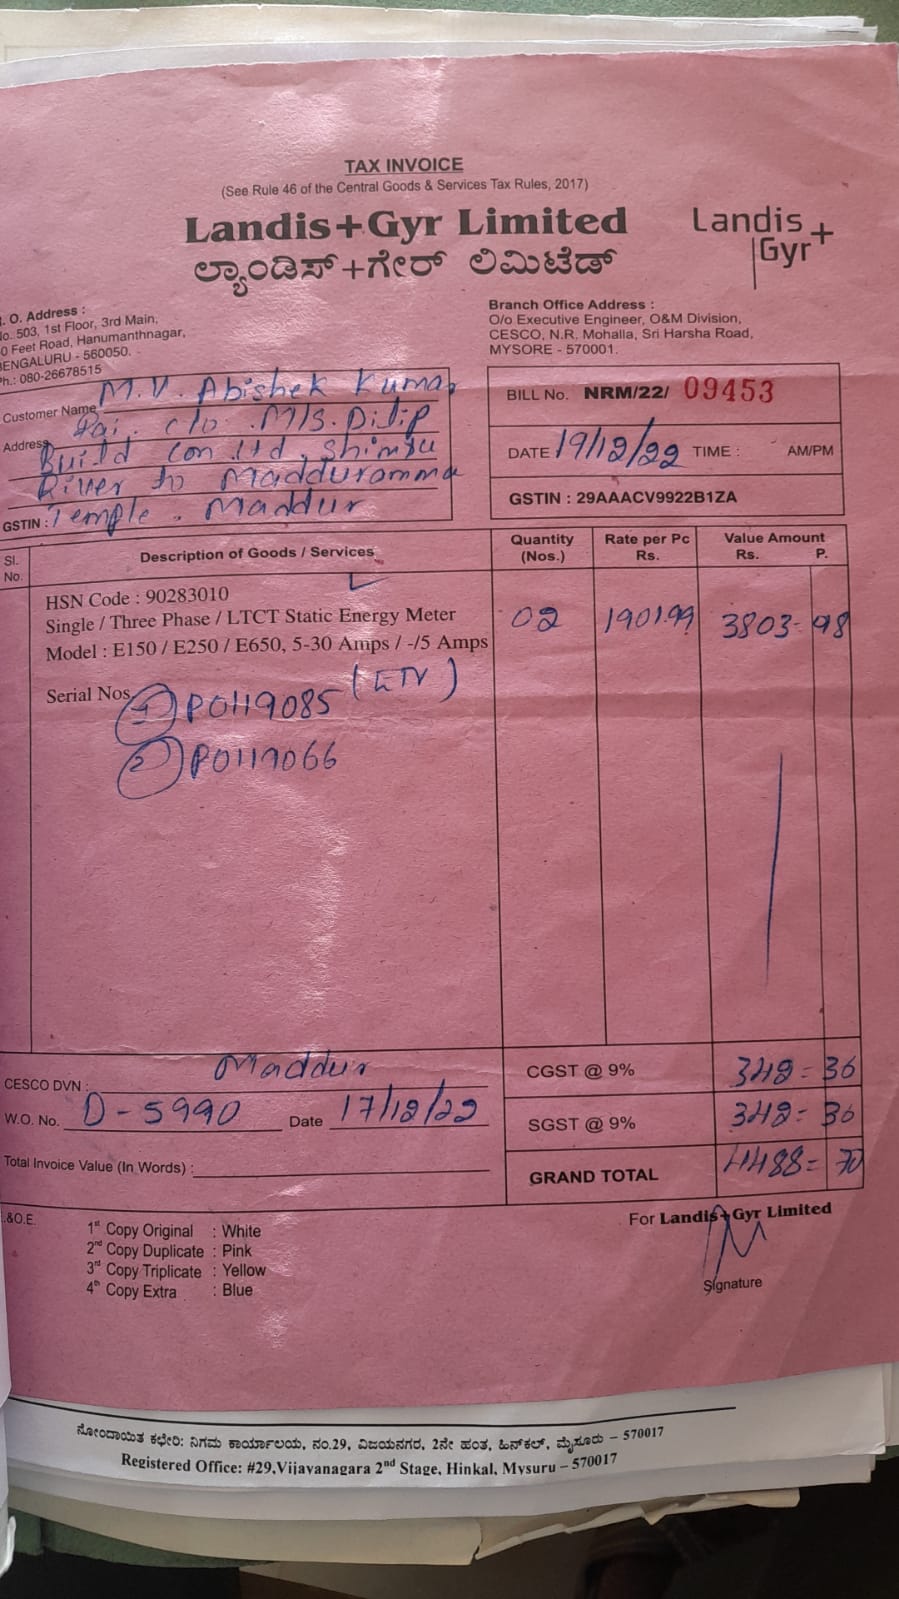 TAX INVOICE
(See Rule 46 of the Central Goods & Services Tax Rules, 2017)
Landis+Gyr Limited
ಲ್ಯಾಂಡಿಸ್+ಗೇರ್ ಲಿಮಿಟೆಡ್
Landis
Gyr+
. O. Address :
No. 503, 1st Floor, 3rd Main,
0 Feet Road, Hanumanthnagar,
BENGALURU - 560050.
Ph.: 080-26678515
Branch Office Address :
O/o Executive Engineer, O&M Division,
CESCO, N.R. Mohalla, Sri Harsha Road,
MYSORE - 570001.
Customer Name M.V. Abishek Kumar
Address Rai. c/o. M/s. Dilip
Build Con Ltd, Shimsa
River to Madduramma
GSTIN : Temple. Maddur
BILL No. NRM/22/ 09453
DATE 19/12/22 TIME : AM/PM
GSTIN : 29AAACV9922B1ZA
Sl. No. Description of Goods / Services Quantity (Nos.) Rate per Pc Rs. Value Amount Rs. P.
HSN Code : 90283010
Single / Three Phase / LTCT Static Energy Meter 02 1901.99 3803-98
Model : E150 / E250 / E650, 5-30 Amps / -/5 Amps
Serial Nos. 1 P0119085
2 P0119066
CESCO DVN : Maddur
W.O. No. D-5990 Date 17/12/22
Total Invoice Value (In Words) :
CGST @ 9% 342=36
SGST @ 9% 342=36
GRAND TOTAL 4488=70
.&O.E.
1st Copy Original : White
2nd Copy Duplicate : Pink
3rd Copy Triplicate : Yellow
4th Copy Extra : Blue
For Landis+Gyr Limited
Signature
ನೋಂದಾಯಿತ ಕಛೇರಿ: ನಿಗಮ ಕಾರ್ಯಾಲಯ, ನಂ.29, ವಿಜಯನಗರ, 2ನೇ ಹಂತ, ಹಿನ್‌ಕಲ್, ಮೈಸೂರು – 570017
Registered Office: #29,Vijayanagara 2nd Stage, Hinkal, Mysuru – 570017